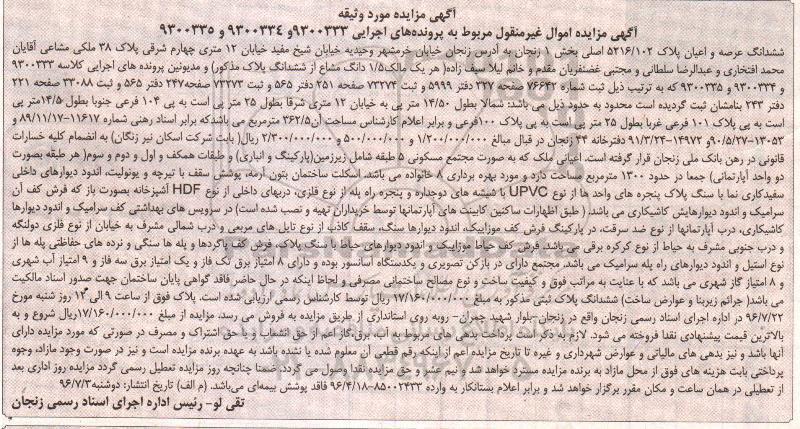 آگهی مزایده مورد وثیقه
آگهی مزایده اموال غیرمنقول مربوط به پرونده‌های اجرایی ۹۳۰۰۳۳۳و ۹۳۰۰۳۳٤ و ۹۳۰۰۳۳۵
ششدانگ عرصه و اعیان پلاک ۵۲۱۶/۱۰۲ اصلی بخش ۱ زنجان به آدرس زنجان خیابان خرمشهر وحیدیه خیابان شیخ مفید خیابان ۱۲ متری چهارم شرقی پلاک ۳۸ ملکی مشاعی آقایان
محمد افتخاری و عبدالرضا سلطانی و مجتبی غضنفریان مقدم و خانم لیلا سیف زاده( هر یک مالک۱/۵ دانگ مشاع از ششدانگ پلاک مذکور) و مدیونین پرونده های اجرایی کلاسه ۹۳۰۰۳۳۳
و ۹۳۰۰۳۳۴ و ۹۳۰۰۳۳۵ که به ترتیب ذیل ثبت شماره ۷۶۶۴۲ صفحه ۳۲۷ دفتر ۵۹۹۹ و ثبت ۷۳۲۷۴ صفحه ۲۵۱ دفتر ۵۶۵ و ثبت ۷۳۲۷۳ صفحه۲۴۷ دفتر ۵۶۵ و ثبت ۳۳۰۸۸ صفحه ۲۲۱
دفتر ۲۴۳ بنامشان ثبت گردیده است محدود به حدود ذیل می باشد: شمالا بطول ۱۴/۵۰ متر پی به خیابان ۱۲ متری شرقا بطول ۲۵ متر پی است به پی ۱۰۴ فرعی جنوبا بطول ۱۴/۵متر پی
است به پی پلاک ۱۰۱ فرعی غربا بطول ۲۵ متر پی است به پی پلاک ۱۰۰فرعی و برابر اعلام کارشناس مساحت آن۳۶۲/۵ مترمربع می باشدکه برابر اسناد رهنی شماره ۱۱۶۱۷-۸۹/۱۱/۱۷ و
۱۳۰۵۳-۹۰/۵/۲۷و ۱۴۹۷۲-۹۱/۳/۲۴ دفترخانه ۴۴ زنجان در قبال مبالغ ۱/۲۰۰/۰۰۰/۰۰۰ و ۵۰۰/۰۰۰/۰۰۰ و ۲/۳۰۰/۰۰۰/۰۰۰ ریال( بابت شرکت اسکان نیر زنگان) به انضمام کلیه خسارات
قانونی در رهن بانک ملی زنجان قرار گرفته است. اعیانی ملک که به صورت مجتمع مسکونی ۵ طبقه شامل زیرزمین(پارکینگ و انباری) و طبقات همکف و اول و دوم و سوم( هر طبقه بصورت
دو واحد آپارتمانی) جمعا در حدود ۱۳۰۰ مترمربع مساحت دارد و مورد بهره برداری ۸ خانواده می باشد. اسکلت ساختمان بتون آرمه، پوشش سقف با تیرچه و یونولیت، اندود دیوارهای داخلی
سفیدکاری نما با سنگ پلاک پنجره های واحد ها از نوع UPVC با شیشه های دوجداره و پنجره راه پله از نوع فلزی، دربهای داخلی از نوع HDF آشپزخانه بصورت باز که فرش کف آن
سرامیک و اندود دیوارهایش کاشیکاری می باشد( طبق اظهارات ساکنین کابینت های آپارتمانها توسط خریداران تهیه و نصب شده است) در سرویس های بهداشتی کف سرامیک و اندود دیوارها
کاشیکاری، درب آپارتمانها از نوع ضد سرقت، در پارکینگ فرش کف موزاییک، اندود دیوارها سنگ، سقف کاذب از نوع تایل های مربعی و درب شمالی مشرف به خیابان از نوع فلزی دولنگه
و درب جنوبی مشرف به حیاط از نوع کرکره برقی می باشد. فرش کف حیاط موزاییک و اندود دیوارهای حیاط با سنگ پلاک، فرش کف پاگردها و پله ها سنگی و نرده های حفاظتی پله ها از
نوع استیل و اندود دیوارهای راه پله سرامیک می باشد. مجتمع دارای در بازکن تصویری و یکدستگاه آسانسور بوده و دارای ۸ امتیاز برق تک فاز و یک امتیاز برق سه فاز و ۹ امتیاز آب شهری
و ۸ امتیاز گاز شهری می باشد که با عنایت به مراتب فوق و کیفیت ساخت و نوع مصالح ساختمانی مصرفی و لحاظ اینکه در حال حاضر فاقد گواهی پایان ساختمان جهت صدور اسناد مالکیت
می باشد( جرائم زیربنا و عوارض ساخت) ششدانگ پلاک ثبتی مذکور به مبلغ ۱۷/۱۶۰/۰۰۰/۰۰۰ ریال توسط کارشناس رسمی ارزیابی شده است. پلاک فوق از ساعت ۹ الی ۱۲ روز شنبه مورخ
۹۶/۷/۲۲ در اداره اجرای اسناد رسمی زنجان واقع در زنجان-بلوار شهید چمران- روبه روی استانداری از طریق مزایده به فروش می رسد. مزایده از مبلغ ۱۷/۱۶۰/۰۰۰/۰۰۰ریال شروع و به
بالاترین قیمت پیشنهادی نقدا فروخته می شود. لازم به ذکر است پرداخت بدهی های مربوط به آب، برق،گاز اعم از حق انشعاب و یا حق اشتراک و مصرف در صورتی که مورد مزایده دارای
آنها باشد و نیز بدهی های مالیاتی و عوارض شهرداری و غیره تا تاریخ مزایده اعم از اینکه رقم قطعی آن معلوم شده یا نشده باشد به عهده برنده مزایده است و نیز در صورت وجود مازاد، وجوه
پرداختی بابت هزینه های فوق از محل مازاد به برنده مزایده مسترد خواهد شد و نیم عشر و حق مزایده نقدا وصول می گردد. ضمنا چنانچه روز مزایده تعطیل رسمی گردد مزایده روز اداری بعد
از تعطیلی در همان ساعت و مکان مقرر برگزار خواهد شد و برابر اعلام بستانکار به وارده ۸۵۰۰۲۴۳۳-۹۶/۴/۱۸ فاقد پوشش بیمه‌ای می‌باشد. (م الف) تاریخ انتشار: دوشنبه۹۶/۷/۳
تقی لو- رئیس اداره اجرای اسناد رسمی زنجان